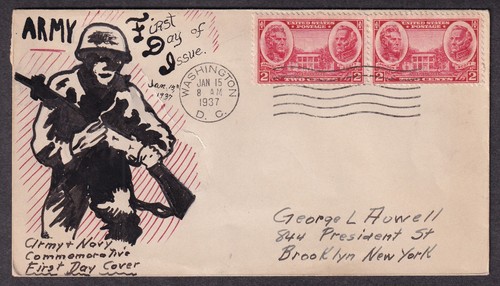 ARMY
First
Day of
Issue.
Jan. 15th
1937
WASHINGTON
JAN 15
8 AM
1937
D. C.
UNITED STATES
POSTAGE
2 TWO CENTS 2
UNITED STATES
POSTAGE
2 CENTS 2
George L Auwell
844 President St
Brooklyn New York
Army & Navy
Commemorative
First Day Cover